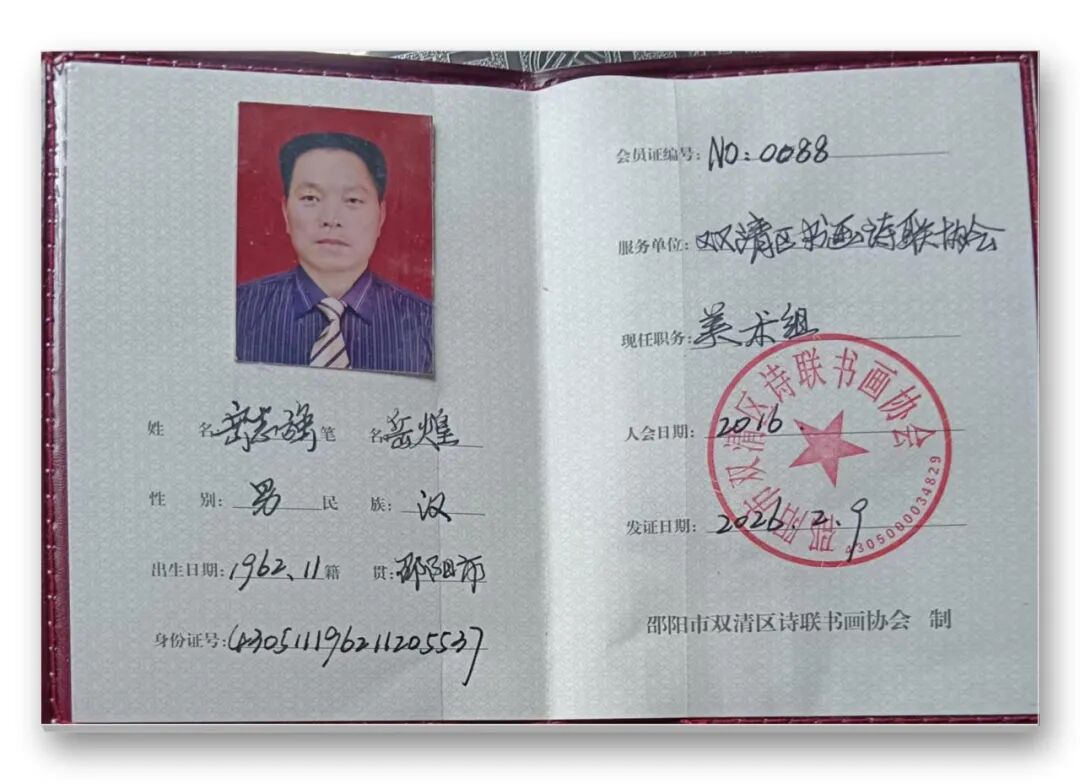 姓 名 岳志强 笔 名 岳煌
性 别: 男 民 族: 汉
出生日期: 1962.11 籍 贯: 邵阳市
身份证号: 430511196211205537
会员证编号: NO:0088
服务单位: 双清区书画诗联协会
现任职务: 美术组
入会日期: 2016.
发证日期: 2026.2.9
邵阳市双清区诗联书画协会
4305000034829
邵阳市双清区诗联书画协会 制